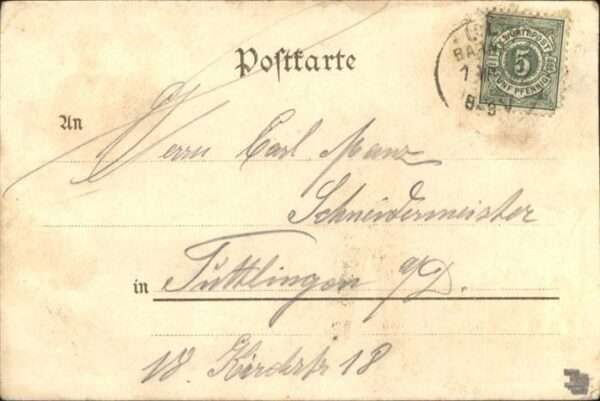 Postkarte
K. WÜRTT. POST
5
FÜNF PFENNIG
8-9 V
An Herrn Carl Manz
Schneidermeister
in Tuttlingen a/D.
Kirchstr 18